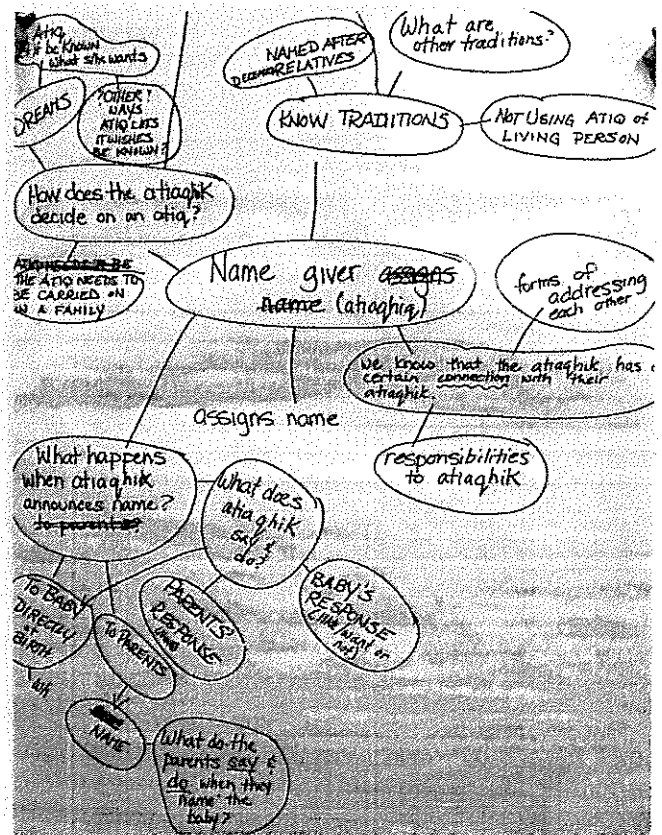 ATIQ
be known
What s/he wants
DREAMS
"OTHER"
WAYS
ATIQ LETS
IT WISHES
BE KNOWN?
NAMED AFTER
RELATIVES
What are
other traditions?
KNOW TRADITIONS
NOT USING ATIQ OF
LIVING PERSON
How does the atiaqhik
decide on an atiq?
THE ATIQ NEEDS TO
BE CARRIED ON
IN A FAMILY
Name giver assigns
name (atiaqhiq)
forms of
addressing
each other
we know that the atiaqhik has a
certain connection with their
atiaqhik.
assigns name
responsibilities
to atiaqhik
What happens
when atiaqhik
announces name?
to parents?
What does
atiaqhik
say &
do?
TO BABY
DIRECTLY
at
BIRTH
TO PARENTS
PARENTS'
RESPONSE
BABY'S
RESPONSE
want or
not)
NAME
What do the
parents say &
do when they
name the
baby?